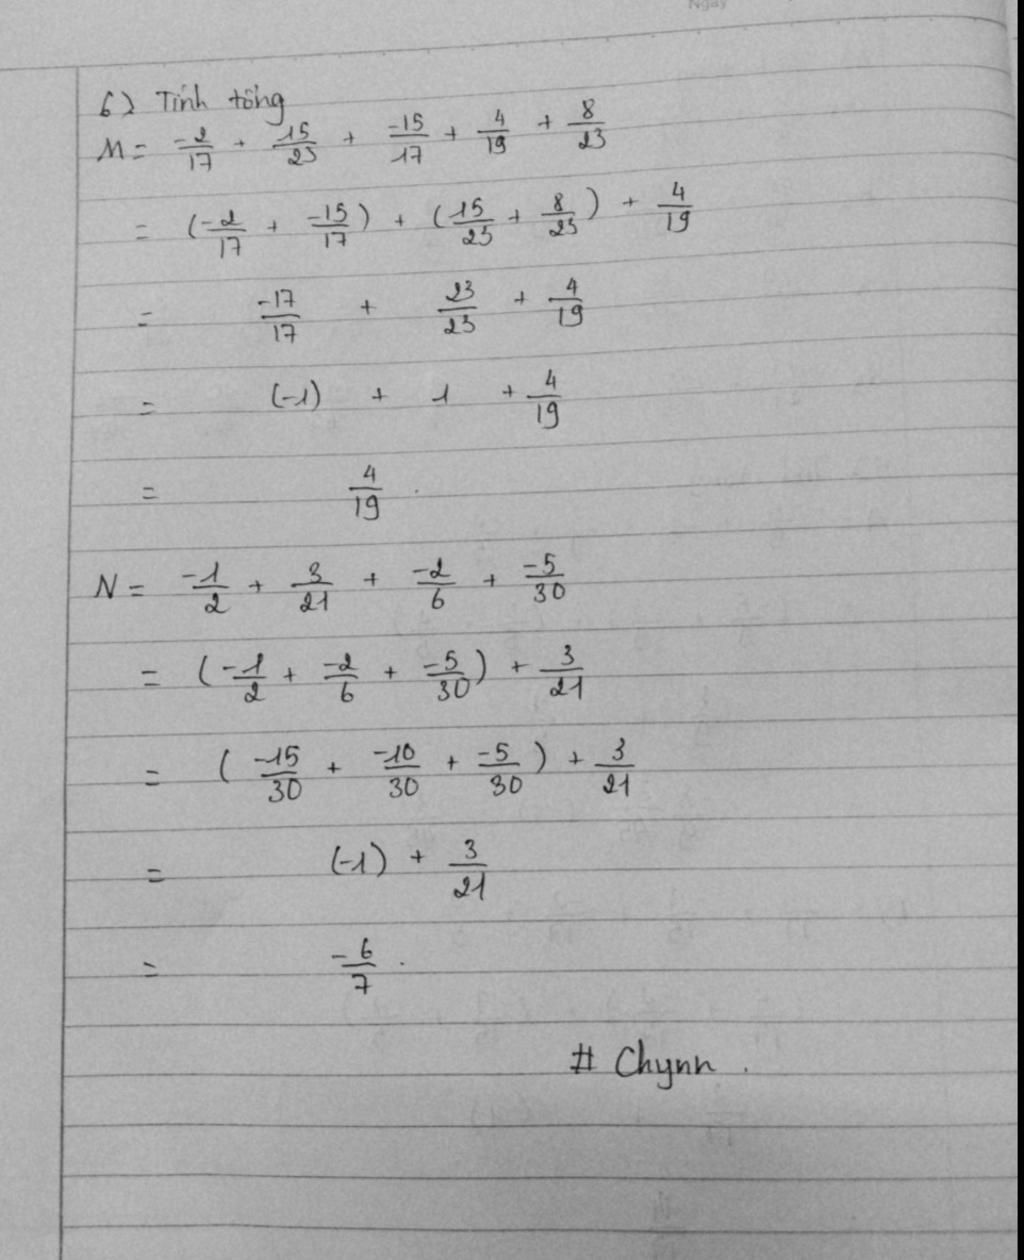 Ngày
6) Tính tổng
M = -2/17 + 15/23 + -15/17 + 4/19 + 8/23
= (-2/17 + -15/17) + (15/23 + 8/23) + 4/19
= -17/17 + 23/23 + 4/19
= (-1) + 1 + 4/19
= 4/19 .
N = -1/2 + 3/21 + -2/6 + -5/30
= (-1/2 + -2/6 + -5/30) + 3/21
= (-15/30 + -10/30 + -5/30) + 3/21
= (-1) + 3/21
= -6/7 .
# Chynn .